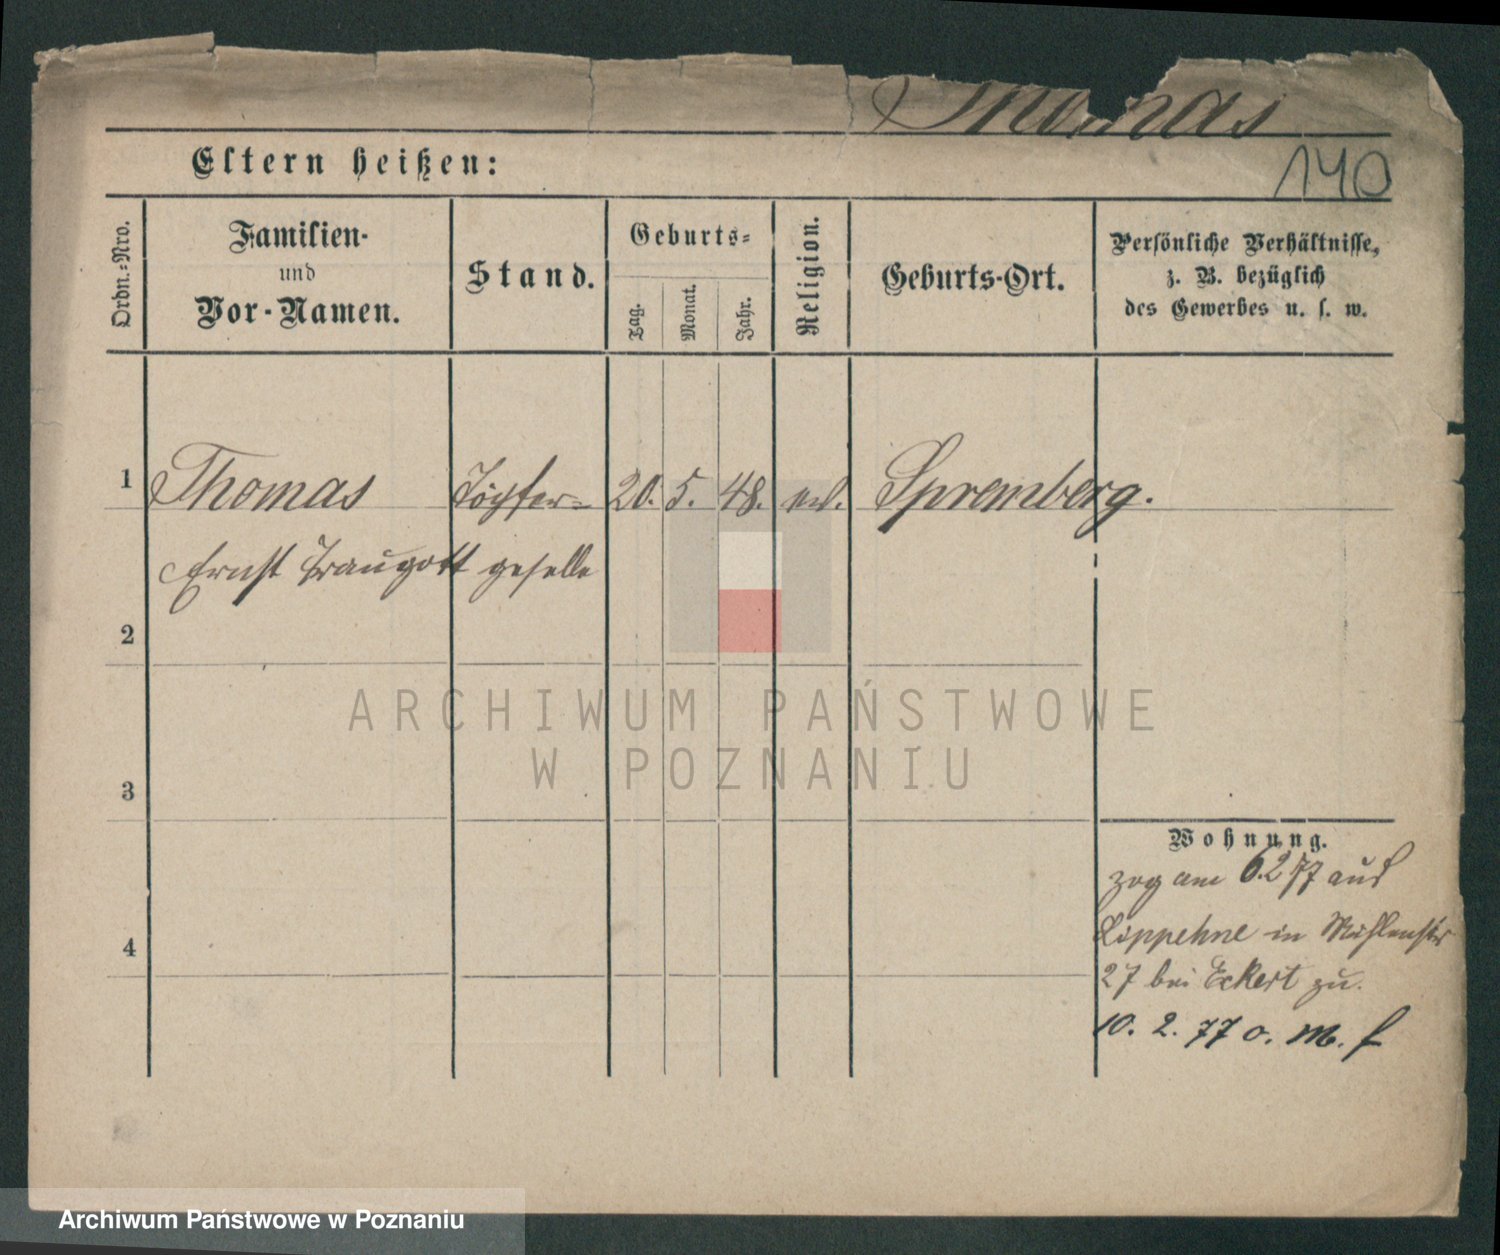 Thomas
140
Eltern heißen:
Ordn.-Nro.
Familien-
und
Vor-Namen.
Stand.
Geburts-
Tag.
Monat.
Jahr.
Religion.
Geburts-Ort.
Persönliche Verhältnisse,
z. B. bezüglich
des Gewerbes u. s. w.
1 Thomas Töpfer- 20. 5. 48. ev. Spremberg.
Ernst Traugott geselle
2
3
4
Wohnung.
zog am 6.2 77 aus
Lippehne in Mühlenstr
27 bei Eckert zu.
10. 2. 77 o. M. f
ARCHIWUM PAŃSTWOWE
W POZNANIU
Archiwum Państwowe w Poznaniu